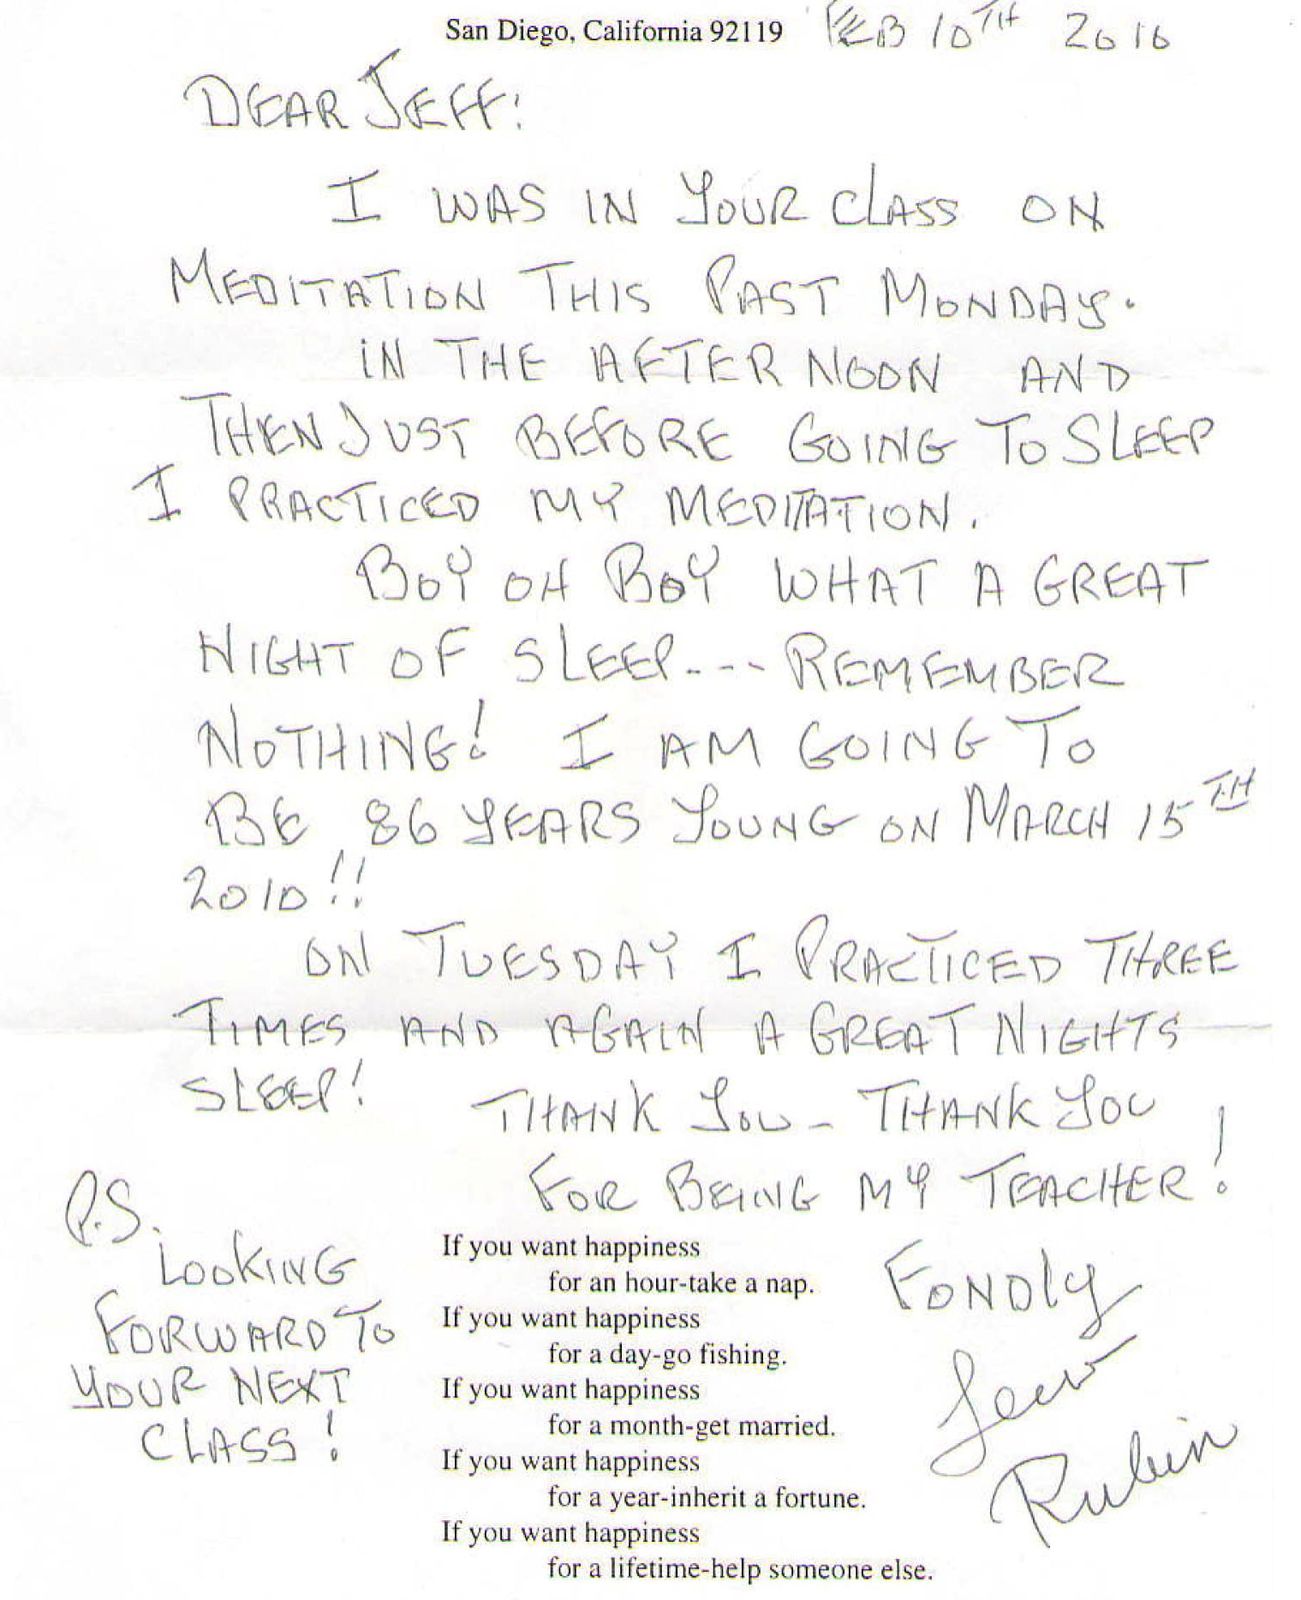 San Diego, California 92119 FEB 10TH 2010
DEAR JEFF:
I WAS IN YOUR CLASS ON
MEDITATION THIS PAST MONDAY.
IN THE AFTER NOON AND
THEN JUST BEFORE GOING TO SLEEP
I PRACTICED MY MEDITATION.
BOY OH BOY WHAT A GREAT
NIGHT OF SLEEP--- REMEMBER
NOTHING! I AM GOING TO
BE 86 YEARS YOUNG ON MARCH 15TH
2010!!
ON TUESDAY I PRACTICED THREE
TIMES AND AGAIN A GREAT NIGHTS
SLEEP!
THANK YOU - THANK YOU
FOR BEING MY TEACHER!
P.S.
LOOKING
FORWARD TO
YOUR NEXT
CLASS!
If you want happiness
for an hour-take a nap.
If you want happiness
for a day-go fishing.
If you want happiness
for a month-get married.
If you want happiness
for a year-inherit a fortune.
If you want happiness
for a lifetime-help someone else.
FONDLY
Rubin